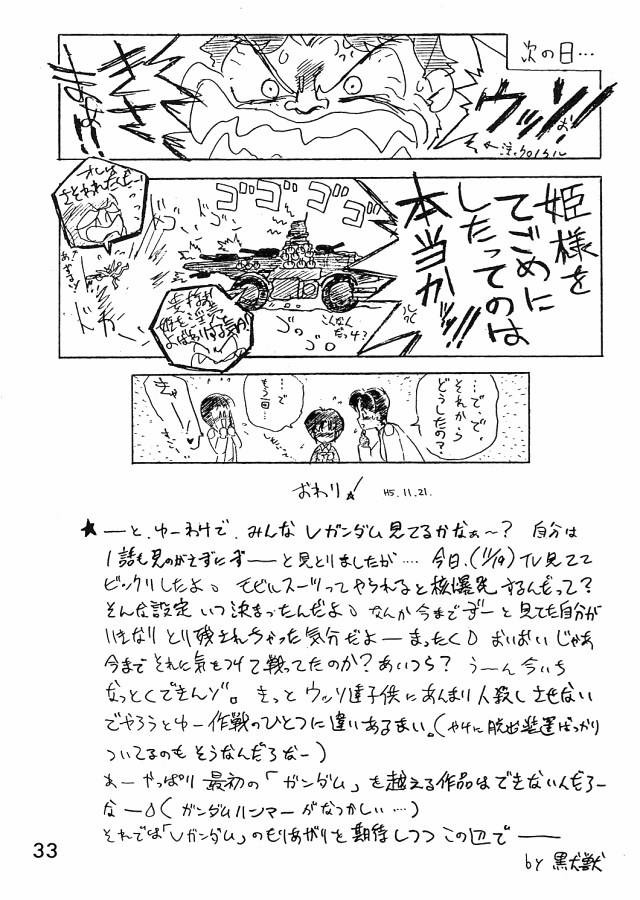 次の日…
ウッソ!!
きさまぁ!!
←注.クロノクル
姫様を
てごめに
したってのは
本当かッ!!
ゴゴゴゴ
オレは
さそわれたんだー!
ドカーン
ゴロゴロ
こんなん
だっけ?
…で、で、
それから
どうしたの?
…で
もう一回…
きゃーーっ♥
おわり☆! H5.11.21.
★ーと、ゆーわけで、みんなVガンダム見てるかなぁ〜? 自分は
1話も見のがさずにずーーと見とりましたが… 今日、(11/19)TV見てて
ビックリしたよ。モビルスーツってやられると核爆発するんだって?
そんな設定いつ決まったんだよ。なんか今までずーと見てた自分が
いきなりとり残されちゃった気分だよーまったく。おいおいじゃあ
今までそれに気をつけて戦ってたのか?あいつら? うーん今いち
なっとくできんゾ。きっとウッソ達子供にあんまり人殺しさせない
でやろうとゆー作戦のひとつに違いあるまい。(やけに脱出装置ばっかり
ついてるのもそうなんだろなー)
あーやっぱり最初の「ガンダム」を越える作品はできないんだろー
なー(ガンダムハンマーがなつかしい…)
それでは「Vガンダム」のもりあがりを期待しつつこの辺でーー
by 黒犬獣
33